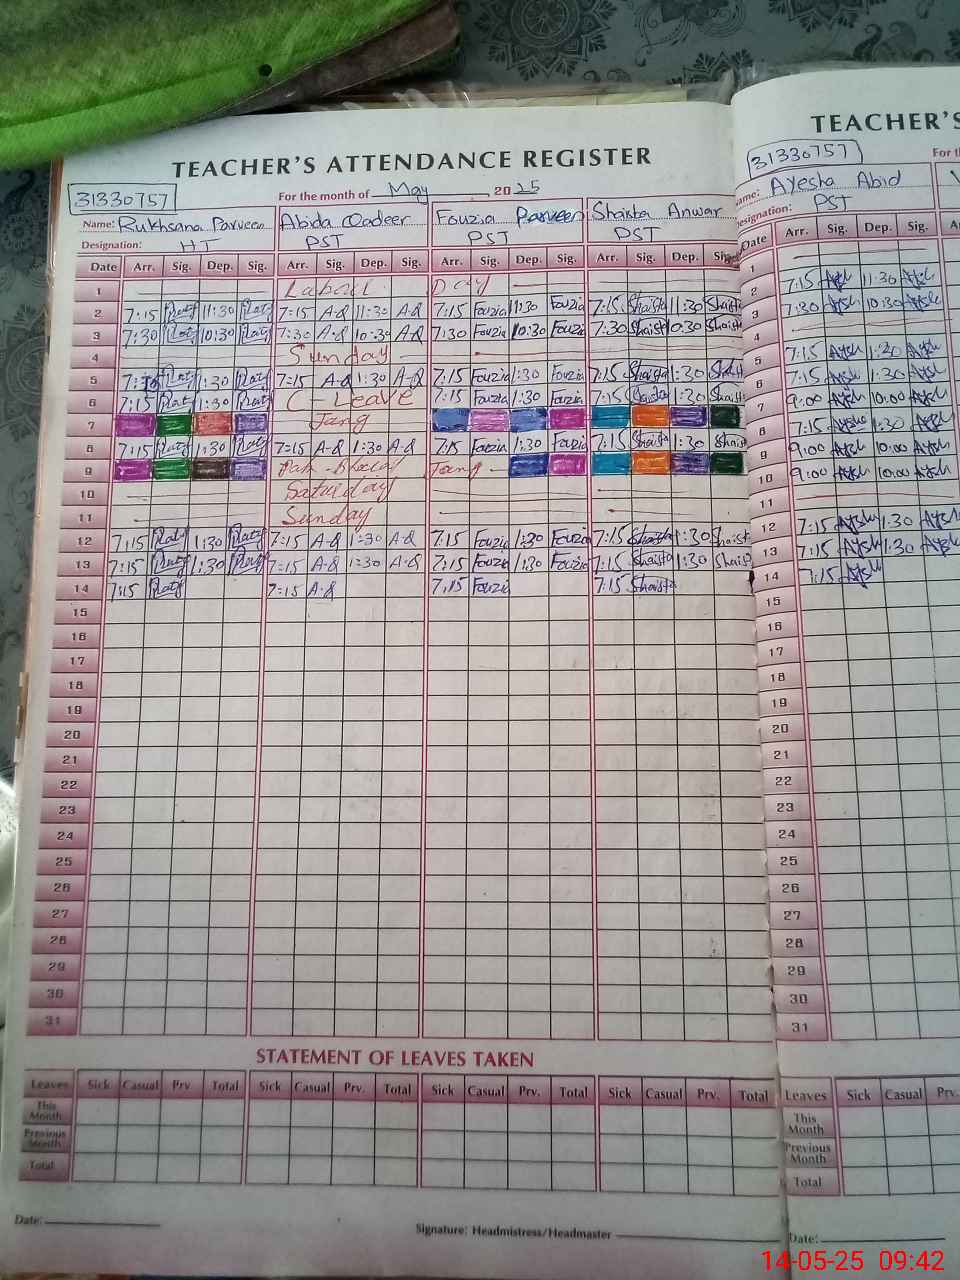 TEACHER'S ATTENDANCE REGISTER
31330757
For the month of May 2025
Name: Rukhsana Parveen Abida Qadeer Fouzia Parveen Shaista Anwar
Designation: HT PST PST PST
Date Arr. Sig. Dep. Sig. Arr. Sig. Dep. Sig. Arr. Sig. Dep. Sig. Arr. Sig. Dep.
1 Labour Day
2 7:15 11:30 7:15 A-Q 11:30 A-Q 7:15 Fouzia 11:30 Fouzia 7:15 Shaista 11:30
3 7:30 10:30 7:30 A-Q 10:30 A-Q 7:30 Fouzia 10:30 Fouzia 7:30 Shaista 10:30
4 Sunday
5 1:30 7:15 A-Q 1:30 A-Q 7:15 Fouzia 1:30 Fouzia 7:15 Shaista 1:30
6 7:15 1:30 C-Leave 7:15 Fouzia 1:30 Fouzia 7:15 Shaista 1:30
7 Jang
8 7:15 1:30 7:15 A-Q 1:30 A-Q 7:15 Fouzia 1:30 Fouzia 7:15 Shaista 1:30
9 Pak - Jang
10 Saturday
11 Sunday
12 7:15 1:30 7:15 A-Q 1:30 A-Q 7:15 Fouzia 1:30 Fouzia 7:15 Shaista 1:30
13 7:15 1:30 7:15 A-Q 1:30 A-Q 7:15 Fouzia 1:30 Fouzia 7:15 Shaista 1:30
14 7:15 7:15 A-Q 7:15 Fouzia 7:15 Shaista
15
16
17
18
19
20
21
22
23
24
25
26
27
28
29
30
31
STATEMENT OF LEAVES TAKEN
Leaves Sick Casual Prv Total Sick Casual Prv. Total Sick Casual Prv. Total Sick Casual Prv. Total
This Month
Previous Month
Total
Date: Signature: Headmistress/Headmaster
TEACHER'S
31330757
For th
Ayesha Abid
PST
Date Arr. Sig. Dep. Sig.
1
2 7:15 11:30
3 7:30 10:30
5 7:15 1:30
6 7:15 1:30
7 9:00 10:00
8 7:15 1:30
9 9:00 10:00
10 9:00 10:00
11
12 7:15 1:30
13 7:15 1:30
14 7:15
15
16
17
18
19
20
21
22
23
24
25
26
27
28
29
30
31
Leaves Sick Casual Prv.
This Month
Previous Month
Total
Date:
14-05-25 09:42